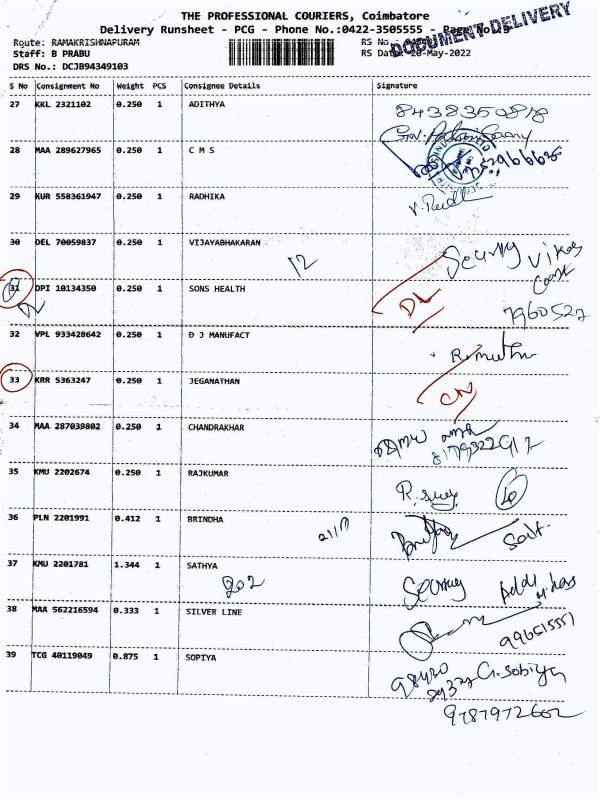 THE PROFESSIONAL COURIERS, Coimbatore
Delivery Runsheet - PCG - Phone No.:0422-3505555 - Page No.
DOCUMENT DELIVERY
Route: RAMAKRISHNAPURAM RS No.
Staff: B PRABU RS Date: 20-May-2022
DRS No.: DCJB94349103
S No Consignment No Weight PCS Consignee Details Signature
27 KKL 2321102 0.250 1 ADITHYA 8438350818
28 MAA 289627965 0.250 1 C M S
29 KUR 558361947 0.250 1 RADHIKA
30 DEL 70059837 0.250 1 VIJAYABHAKARAN 12 Security
31 DPI 10134350 0.250 1 SONS HEALTH DL 7960522
32 VPL 933428642 0.250 1 D J MANUFACT R. muthu
33 KRR 5363247 0.250 1 JEGANATHAN CN
34 MAA 287039802 0.250 1 CHANDRAKHAR
35 KMU 2202674 0.250 1 RAJKUMAR
36 PLN 2201991 0.412 1 BRINDHA
37 KMU 2201781 1.344 1 SATHYA 202 Security
38 MAA 562216594 0.333 1 SILVER LINE
39 TCG 40119049 0.875 1 SOPIYA G. Sobiya
9787972662